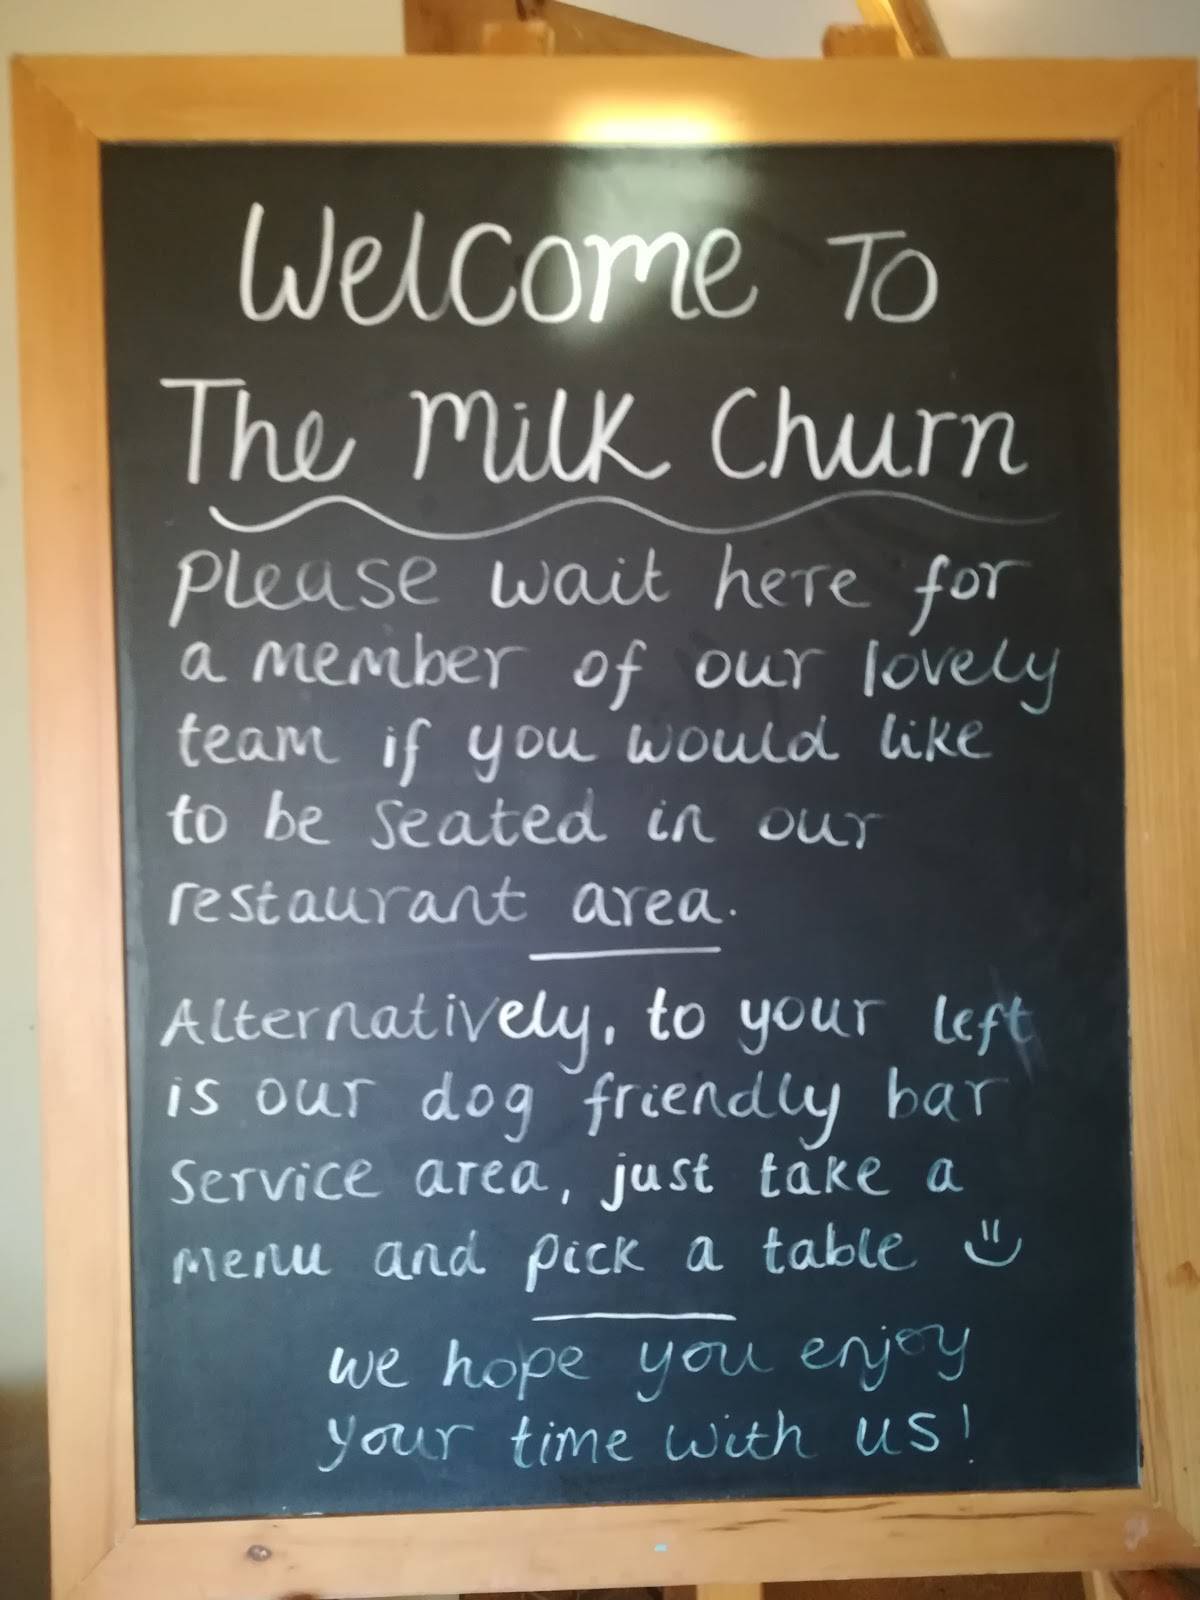 Welcome To
The Milk Churn
please wait here for
a member of our lovely
team if you would like
to be seated in our
restaurant area.
Alternatively, to your left
is our dog friendly bar
service area, just take a
menu and pick a table
we hope you enjoy
your time with us!